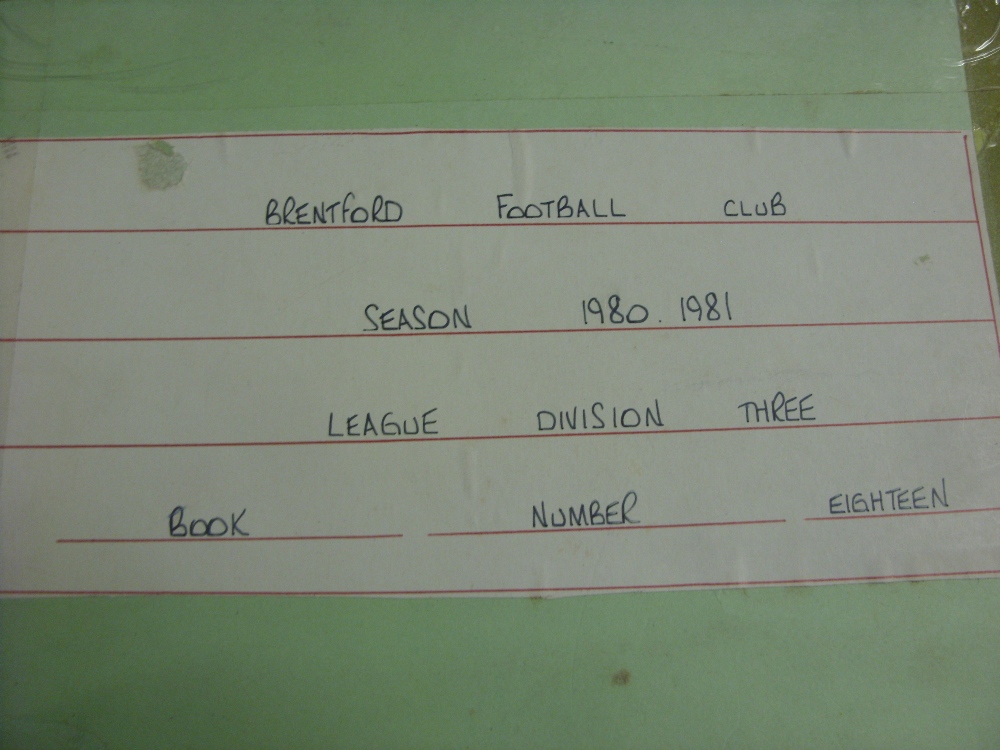 BRENTFORD FOOTBALL CLUB
SEASON 1980. 1981
LEAGUE DIVISION THREE
BOOK NUMBER EIGHTEEN